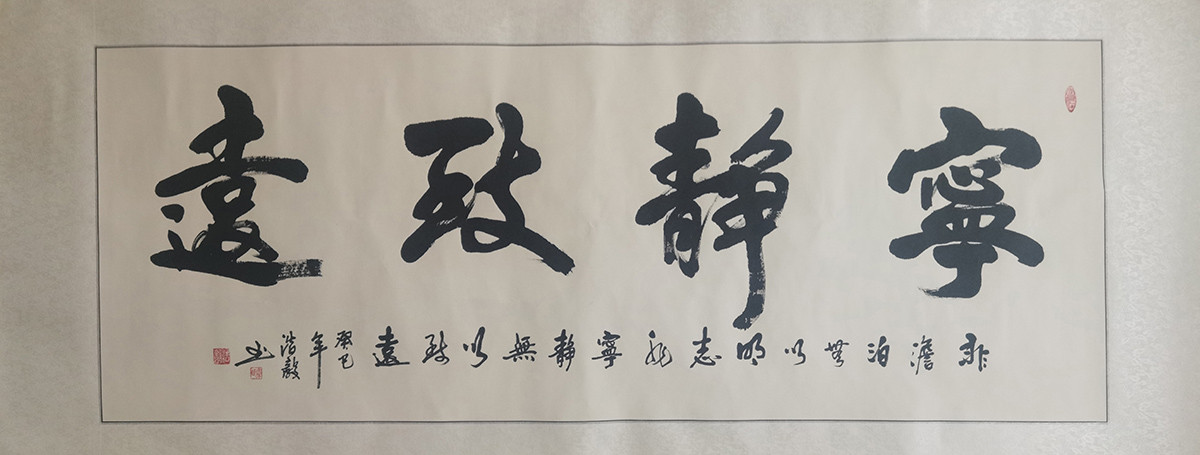 寧靜致遠
非澹泊無以明志非寧靜無以致遠
癸巳年
浩毅書